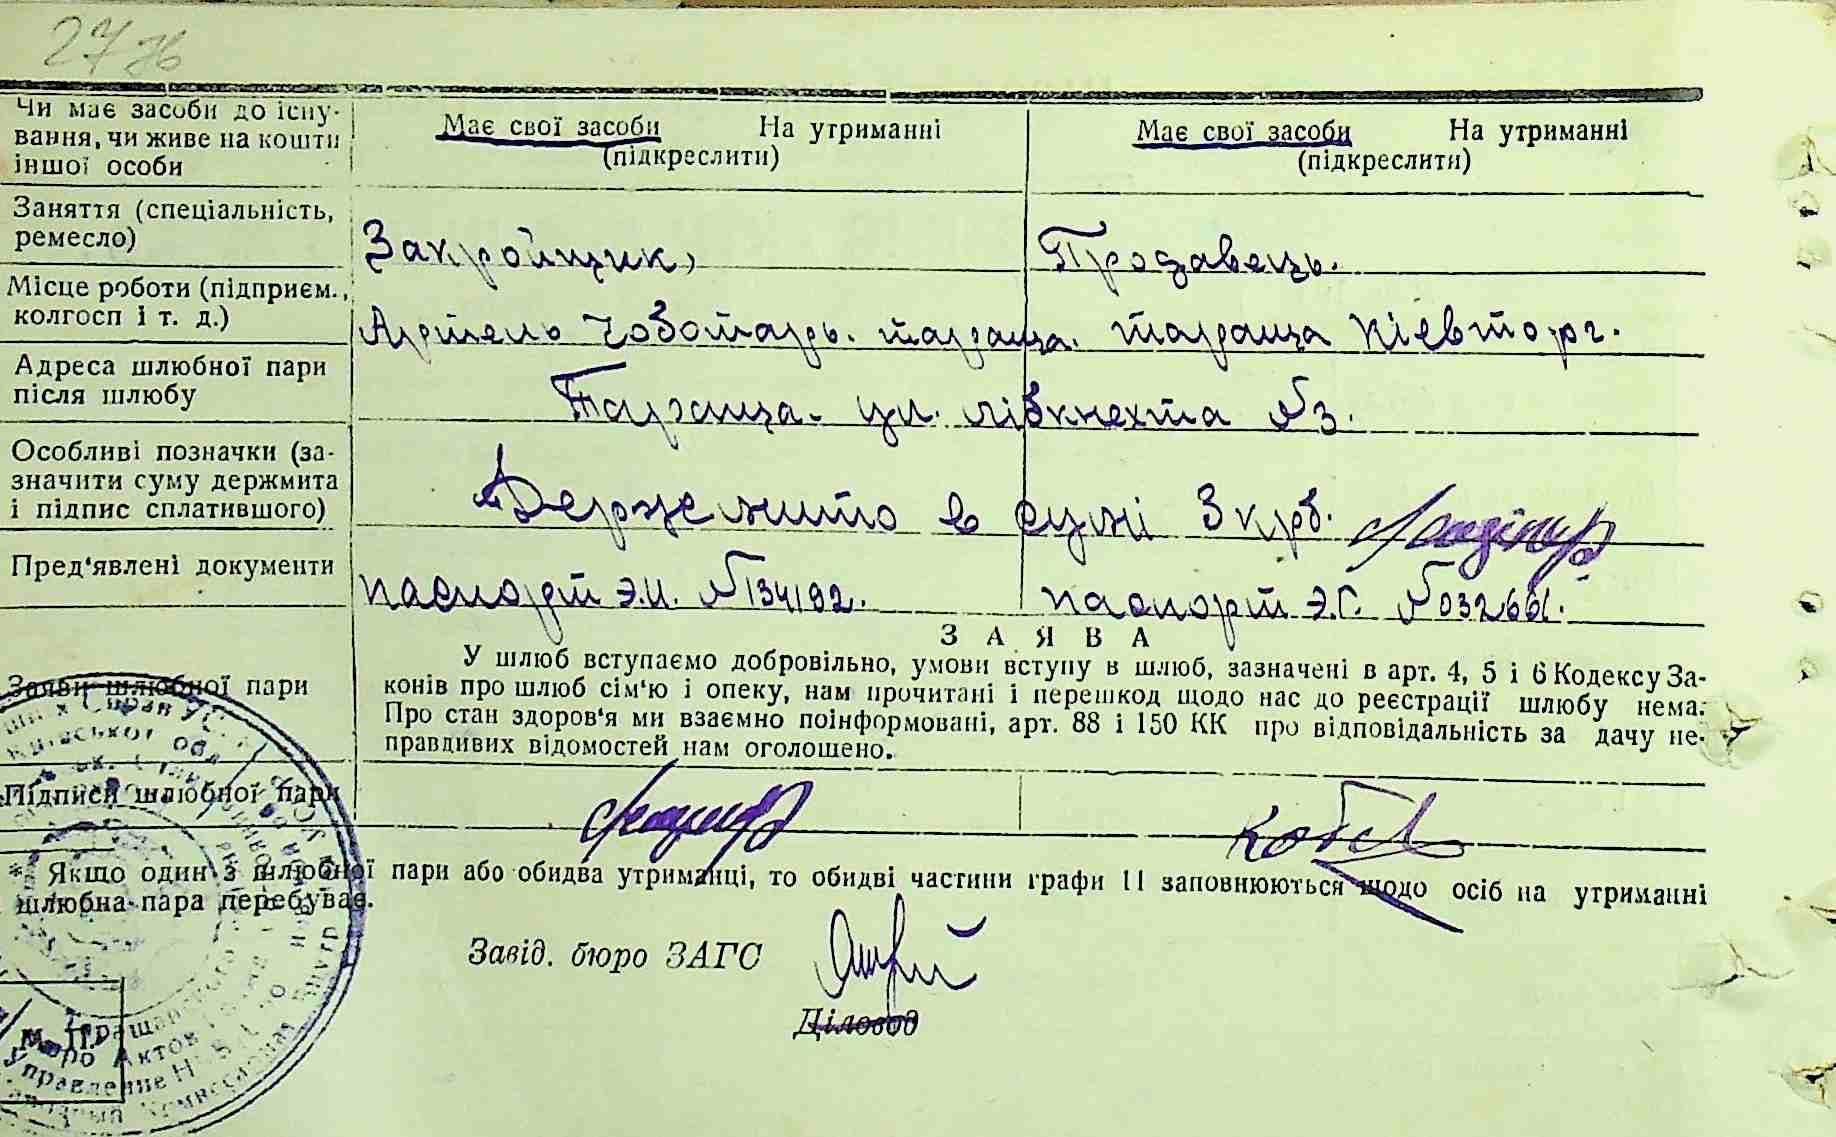 27 76
Чи має засоби до існу-
вання, чи живе на кошти
іншої особи
Має свої засоби На утриманні
(підкреслити)
Має свої засоби На утриманні
(підкреслити)
Заняття (спеціальність,
ремесло)
Закройщик,
Продавець.
Місце роботи (підприєм.,
колгосп і т. д.)
Артель Чоботарь. Тараща.
Тараща Київторг.
Адреса шлюбної пари
після шлюбу
Тараща. ул. лібкнехта №3.
Особливі позначки (за-
значити суму держмита
і підпис сплатившого)
Держмито в сумі 3 крб.
Пред'явлені документи
паспорт Э.И. №134192.
паспорт Э.Г. №032661.
ЗАЯВА
Заяви шлюбної пари
У шлюб вступаємо добровільно, умови вступу в шлюб, зазначені в арт. 4, 5 і 6 Кодексу За-
конів про шлюб сім'ю і опеку, нам прочитані і перешкод щодо нас до реєстрації шлюбу нема.
Про стан здоров'я ми взаємно поінформовані, арт. 88 і 150 КК про відповідальність за дачу не-
правдивих відомостей нам оголошено.
Підписи шлюбної пари
* Якщо один з шлюбної пари або обидва утриманці, то обидві частини графи 11 заповнюються щодо осіб на утриманні
шлюбна пара перебуває.
Завід. бюро ЗАГС
Діловод
М. П.
Київської обл
Таращанского
Бюро Актов
Управление Н